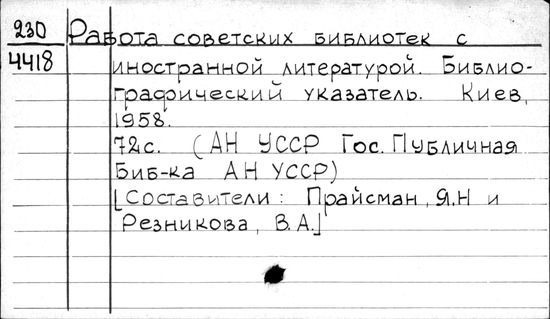 230 Работа советских библиотек с
4418 иностранной литературой. Библио-
графический указатель. Киев,
1958.
72с. (АН УССР Гос. Публичная
Биб-ка АН УССР)
[Составители: Прайсман, Я.Н и
Резникова, В.А.]